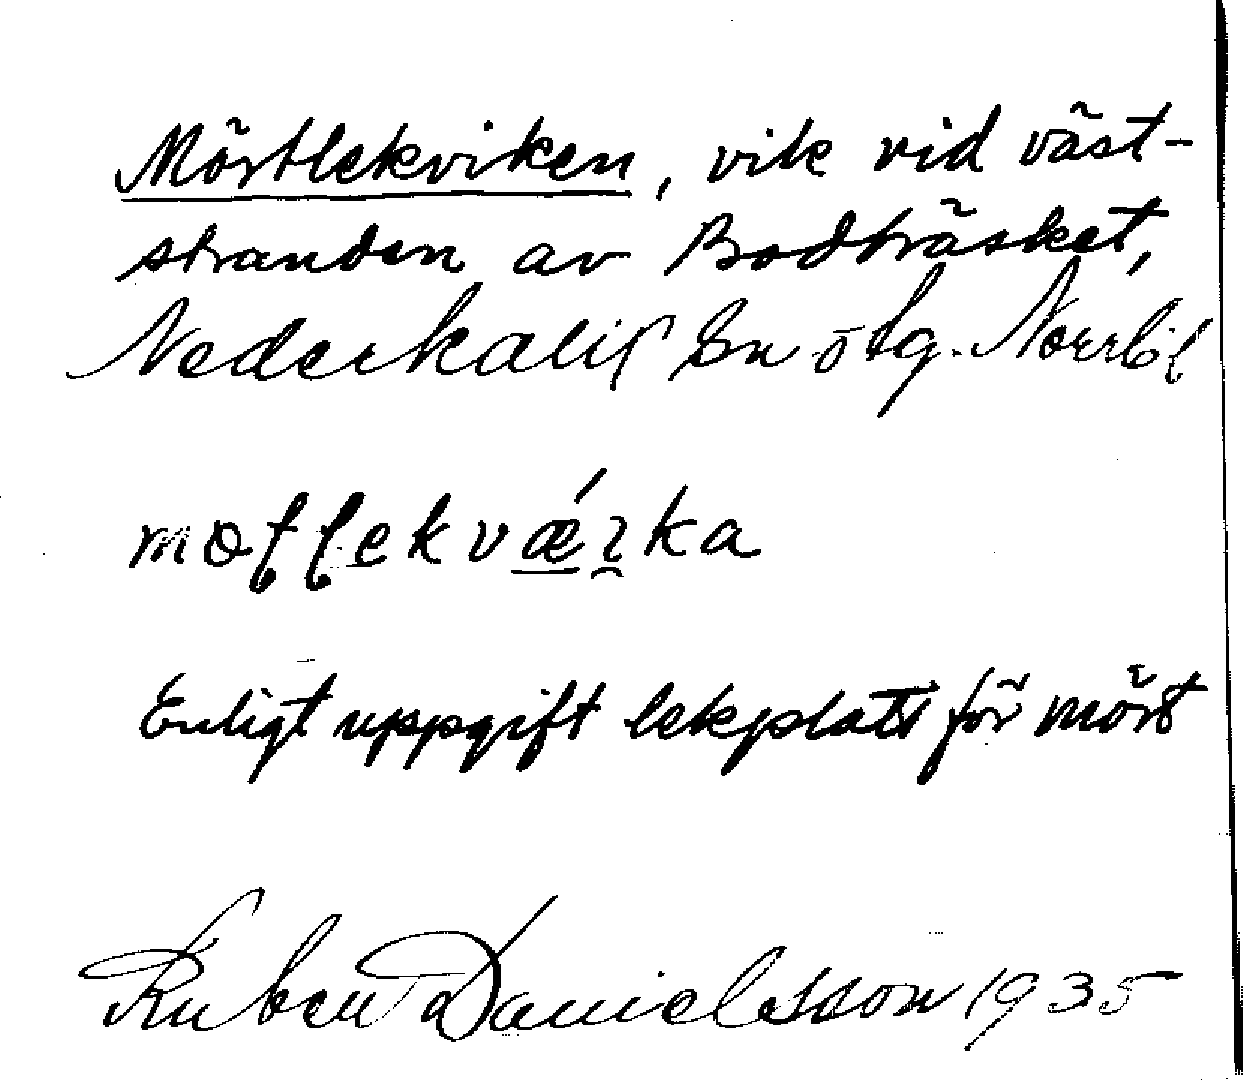 Mörtlekviken, vik vid väst-
stranden av Bodträsket,
Nederkalix sn ölg. Norrb. l
Enligt uppgift lekplats för mört
Ruben Danielsson 1935